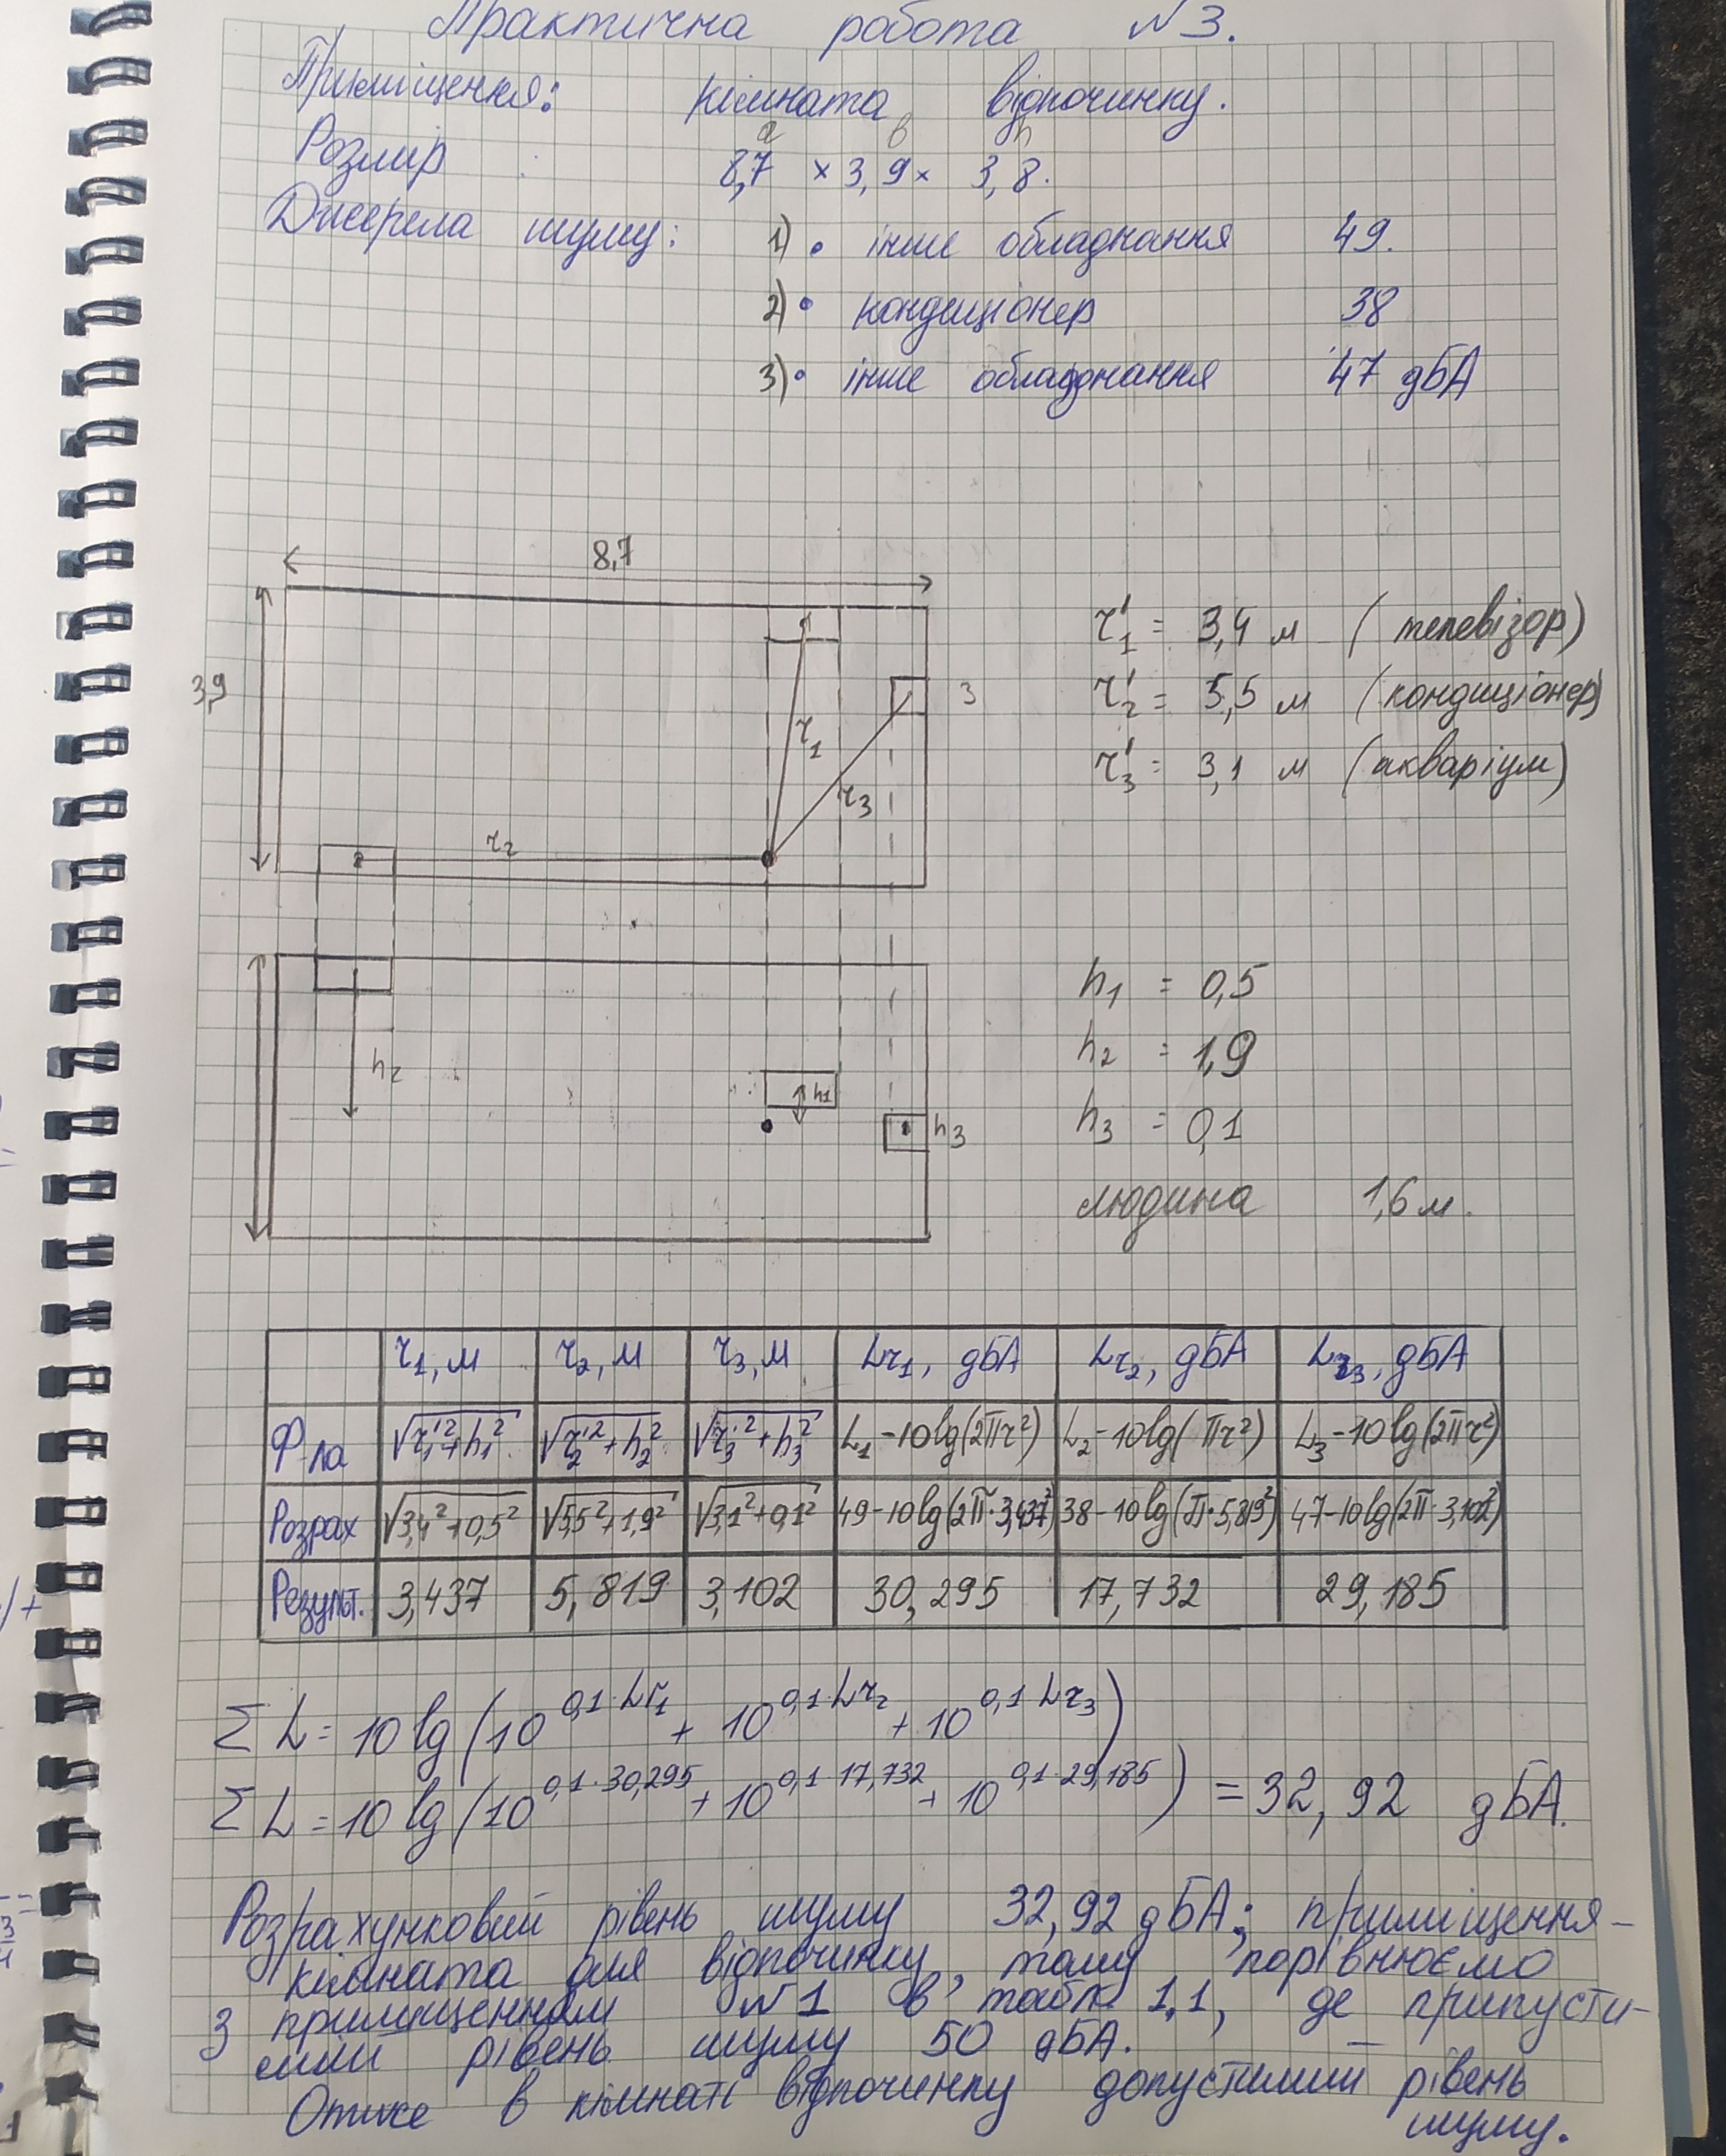 Практична робота №3.
Приміщення: кімната відпочинку.
a в h
Розмір : 8,7 × 3,9 × 3,8.
Джерела шуму: 1) • інше обладнання 49.
2) • кондиціонер 38
3) • інше обладнання 47 дБА
8,7
3,9
r₁
r₃
r₂
3
2
r₁' = 3,4 м (телевізор)
r₂' = 5,5 м (кондиціонер)
r₃' = 3,1 м (акваріум)
h₂
h₁
h₃
h₁ = 0,5
h₂ = 1,9
h₃ = 0,1
людина 1,6 м.
r₁, м r₂, м r₃, м Lr₁, дБА Lr₂, дБА Lr₃, дБА
Ф-ла √r₁'²+h₁² √r₂'²+h₂² √r₃'²+h₃² L₁-10lg(2πr²) L₂-10lg(πr²) L₃-10lg(2πr²)
Розрах √3,4²+0,5² √5,5²+1,9² √3,1²+0,1² 49-10lg(2π·3,437²) 38-10lg(π·5,819²) 47-10lg(2π·3,102²)
Результ. 3,437 5,819 3,102 30,295 17,732 29,185
ΣL = 10 lg (10^0,1·Lr₁ + 10^0,1·Lr₂ + 10^0,1·Lr₃)
ΣL = 10 lg (10^0,1·30,295 + 10^0,1·17,732 + 10^0,1·29,185) = 32,92 дБА.
Розрахунковий рівень шуму 32,92 дБА; приміщення-
кімната для відпочинку, тому порівнюємо
з приміщенням №1 в табл. 1.1, де припусти-
мий рівень шуму 50 дБА.
Отже в кімнаті відпочинку допустимий рівень
шуму.